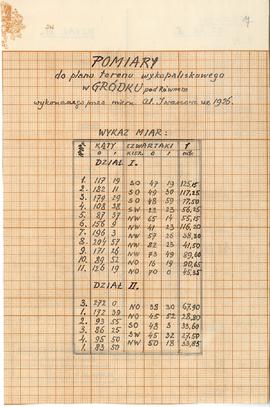 POMIARY
do planu terenu wykopaliskowego
w GRÓDKU pod Równem
wykonanego przez miern. Al. w r. 1936.
WYKAZ MIAR:
KĄTY CZWARTAKI f
0 1 KIER. 0 1
DZIAŁ I.
1. 117 19 SO 47 19 125,15
2. 182 11 SO 49 30 117,25
3. 179 29 SO 48 59 77,50
4. 108 38 SW 22 23 56,25
5. 87 37 NW 65 14 55,15
6. 156 9 NW 41 23 116,20
7. 196 3 NW 57 26 38,30
8. 204 57 NW 82 23 41,50
9. 171 26 NW 73 49 89,60
10. 89 52 NO 16 19 90,65
11. 126 19 NO 70 0 45,35
DZIAŁ II.
3. 272 0 NO 38 30 67,90
1. 172 39 NO 45 52 28,80
2. 93 55 SO 48 3 33,60
3. 86 25 SW 45 32 27,50
4. 95 50 NW 50 18 33,85
1. 83 50